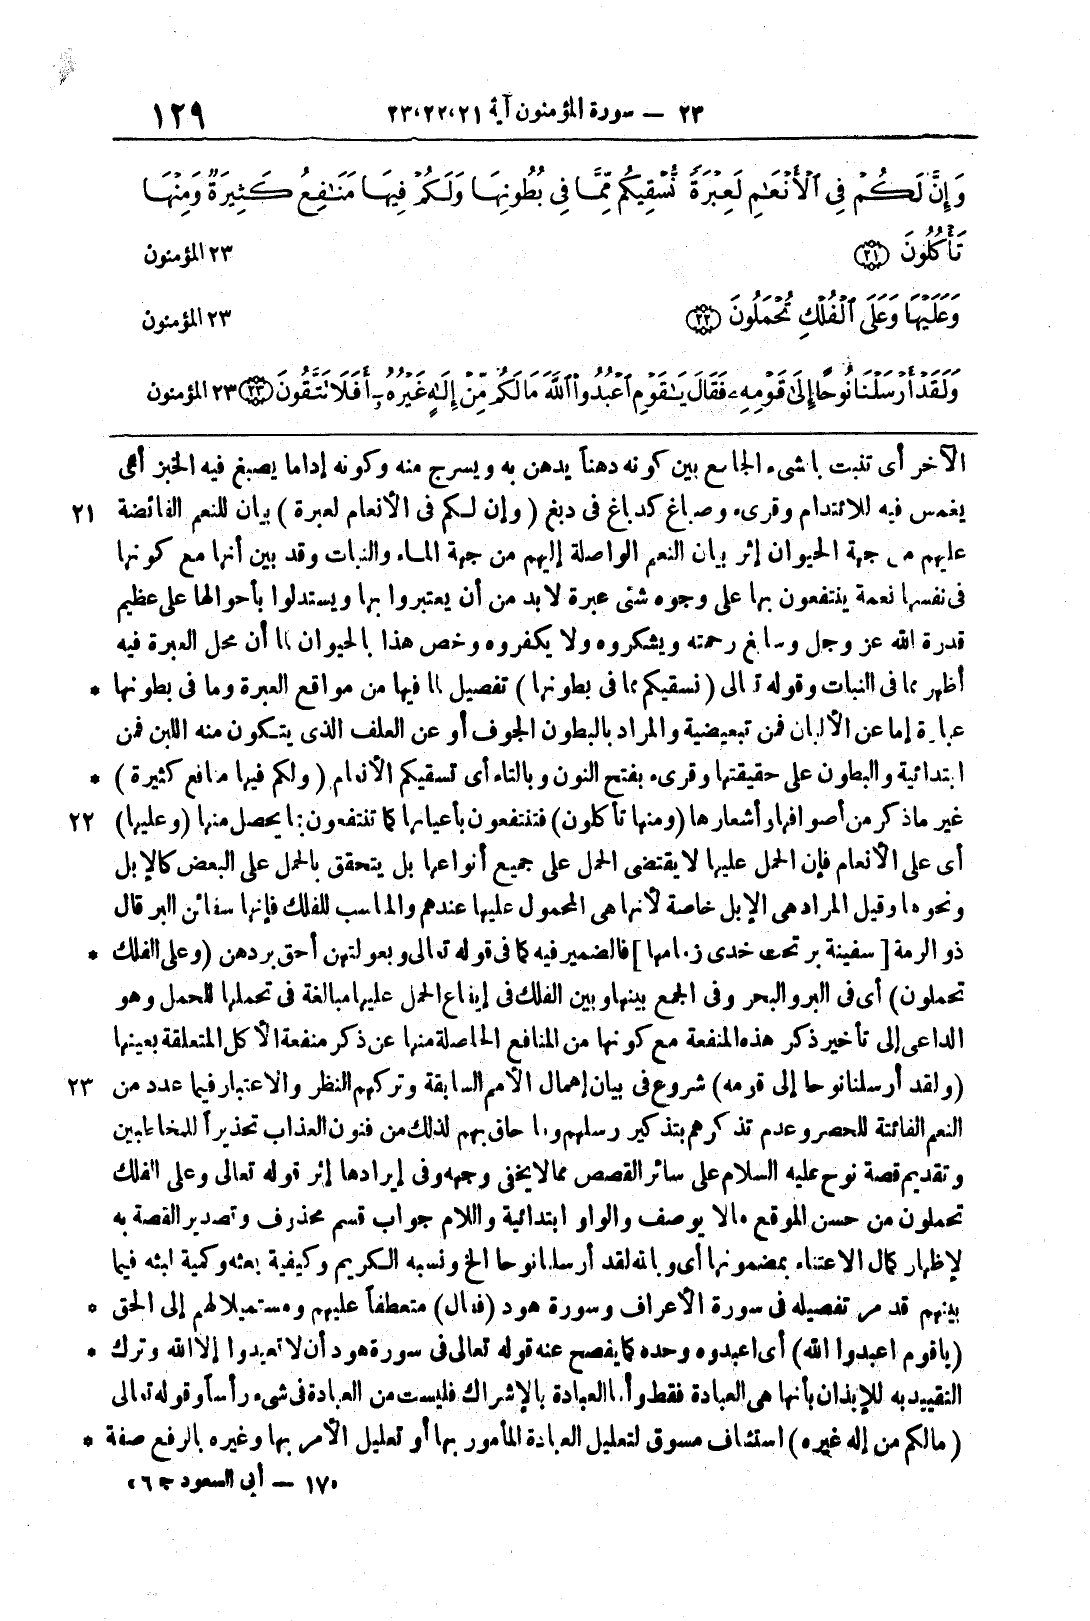 ٢٣ — سورة المؤمنون آية ٢١،٢٢،٢٣ ١٢٩
وَإِنَّ لَكُمْ فِى ٱلْأَنْعَٰمِ لَعِبْرَةً نُّسْقِيكُم مِّمَّا فِى بُطُونِهَا وَلَكُمْ فِيهَا مَنَٰفِعُ كَثِيرَةٌ وَمِنْهَا
تَأْكُلُونَ ٢١ ٢٣ المؤمنون
وَعَلَيْهَا وَعَلَى ٱلْفُلْكِ تُحْمَلُونَ ٢٢ ٢٣ المؤمنون
وَلَقَدْ أَرْسَلْنَا نُوحًا إِلَىٰ قَوْمِهِۦ فَقَالَ يَٰقَوْمِ ٱعْبُدُوا۟ ٱللَّهَ مَا لَكُم مِّنْ إِلَٰهٍ غَيْرُهُۥٓ أَفَلَا تَتَّقُونَ ٢٣ ٢٣ المؤمنون
الآخر أى تنبت بالشىء الجامع بين كونه دهناً يدهن به ويسرج منه وكونه إداما يصبغ فيه الخبز أى
يغمس فيه للائتدام وقرىء وصباغ كدباغ فى دبغ ( وإن لكم فى الأنعام لعبرة ) بيان للنعم الفائضة ٢١
عليهم من جهة الحيوان إثر بيان النعم الواصلة إليهم من جهة الماء والنبات وقد بين أنها مع كونها
فى نفسها نعمة ينتفعون بها على وجوه شتى عبرة لابد من أن يعتبروا بها ويستدلوا بأحوالها على عظيم
قدرة الله عز وجل وسابغ رحمته ويشكروه ولا يكفروه وخص هذا بالحيوان لما أن محل العبرة فيه
أظهر مما فى النبات وقوله تعالى ( نسقيكم مما فى بطونها ) تفصيل لما فيها من مواقع العبرة وما فى بطونها *
عبارة إما عن الألبان فمن تبعيضية والمراد بالبطون الجوف أو عن العلف الذى يتكون منه اللبن فمن
ابتدائية والبطون على حقيقتها وقرىء بفتح النون وبالتاء أى تسقيكم الأنعام ( ولكم فيها منافع كثيرة ) *
غير ماذكر من أصوافها وأشعارها (ومنها تأكلون) فتنتفعون بأعيانها كما تنتفعون بما يحصل منها (وعليها) ٢٢
أى على الأنعام فإن الحمل عليها لا يقتضى الحمل على جميع أنواعها بل يتحقق بالحمل على البعض كالإبل
ونحوها وقيل المراد هى الإبل خاصة لأنها هى المحمول عليها عندهم والمناسب للفلك فإنها سفائن البر قال
ذو الرمة [ سفينة بر تحت خدى زمامها ] فالضمير فيه كما فى قوله تعالى وبعولتهن أحق بردهن (وعلى الفلك *
تحملون) أى فى البر والبحر وفى الجمع بينها وبين الفلك فى إيقاع الحمل عليها مبالغة فى تحملها للحمل وهو
الداعى إلى تأخير ذكر هذه المنفعة مع كونها من المنافع الحاصلة منها عن ذكر منفعة الأكل المتعلقة بعينها
(ولقد أرسلنا نوحا إلى قومه) شروع فى بيان إهمال الأمم السابقة وتركهم النظر والاعتبار فيما عدد من ٢٣
النعم الفائتة للحصر وعدم تذكرهم بتذكير رسلهم وما حاق بهم لذلك من فنون العذاب تحذيراً للمخاطبين
وتقديم قصة نوح عليه السلام على سائر القصص مما لا يخفى وجهه وفى إيرادها إثر قوله تعالى وعلى الفلك
تحملون من حسن الموقع مالا يوصف والواو ابتدائية واللام جواب قسم محذوف وتصدير القصة به
لإظهار كمال الاعتناء بمضمونها أى وبالله لقد أرسلنا نوحا الخ ونسبه الكريم وكيفية بعثه وكمية لبثه فيما
بينهم قد مر تفصيله فى سورة الأعراف وسورة هود (فقال) متعطفاً عليهم ومستميلا لهم إلى الحق *
(ياقوم اعبدوا الله) أى اعبدوه وحده كما يفصح عنه قوله تعالى فى سورة هود أن لا تعبدوا إلا الله وترك *
التقييد به للإيذان بأنها هى العبادة فقط وأما العبادة بالإشراك فليست من العبادة فى شىء رأساً وقوله تعالى
( مالكم من إله غيره) استئناف مسوق لتعليل العبادة المأمور بها أو تعليل الأمر بها وغيره بالرفع صفة *
«١٧ — أبى السعود ج ٦»